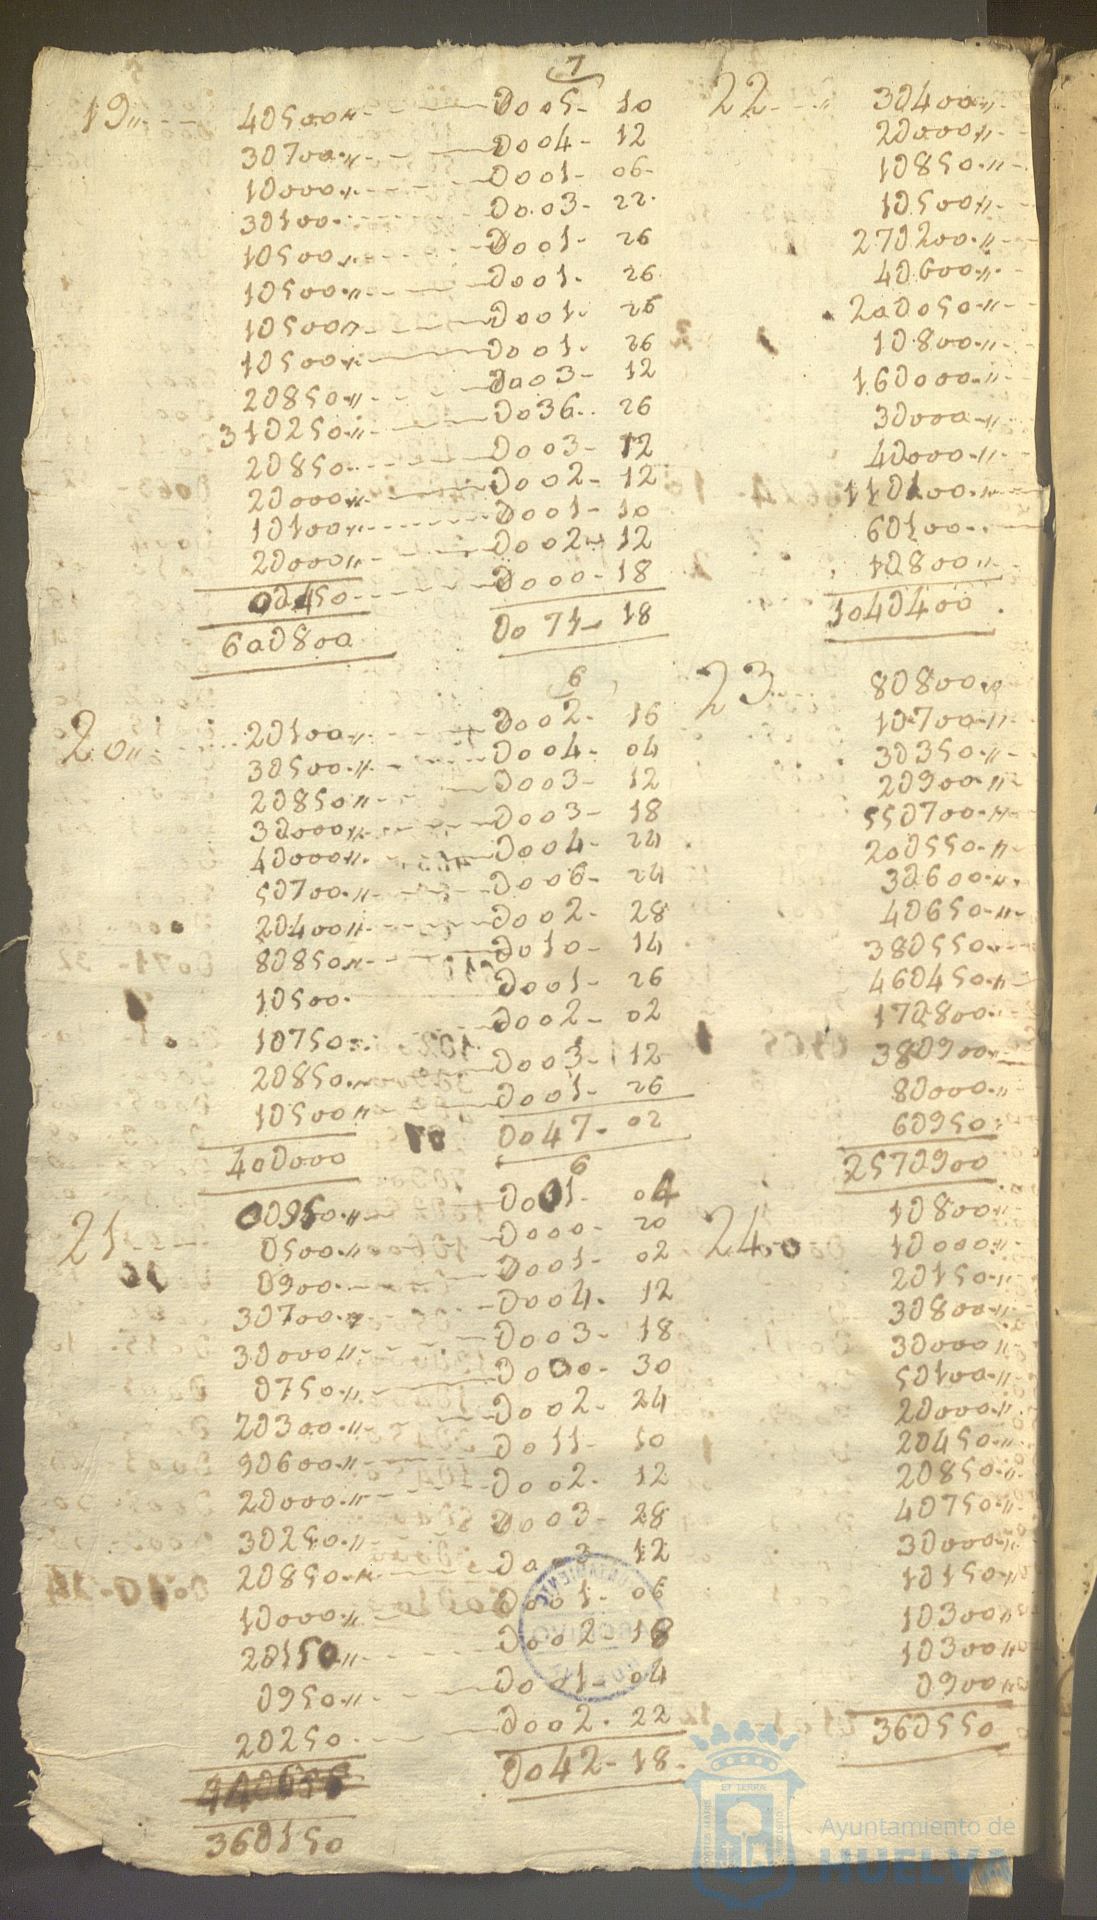 7
19〃 40500〃 D005- 10
30700〃 D004- 12
10000〃 D001- 06
30100 D003- 22
10500〃 D001- 26
10500〃 D001- 26
10500〃 D001- 26
10500〃 D001- 26
20850〃 D003- 12
310250〃 D036- 26
20850 D003- 12
20000〃 D002- 12
10100〃 D001- 10
20000〃 D002- 12
0D450 D000- 18
600800 D071- 18
6
20〃 20100〃 D002- 16
30500〃 D004- 04
20850〃 D003- 12
30000〃 D003- 18
40000〃 D004- 24
50700〃 D006- 24
20400〃 D002- 28
80850〃 D010- 14
10500 D001- 26
10750 D002- 02
20850 D003- 12
10500〃 D001- 26
400000 D047- 02
6
21 0D950〃 D001- 04
0500〃 D000- 20
0900 D001- 02
30700 D004- 12
30000〃 D003- 18
0750〃 D000- 30
20300〃 D002- 24
90600〃 D011- 10
20000〃 D002- 12
30250〃 D003- 28
20850〃 D003- 12
10000〃 D001- 06
20150〃 D002- 18
0950〃 D001- 04
20250 D002- 22
D042- 18
360150
22 30400〃
20000〃
10850〃
10500〃
270200〃
40600〃
200050〃
10800〃
160000〃
30000〃
40000〃
110100〃
60100
10800〃
1040400
23 80800
10700〃
30350〃
20900〃
550700〃
200550〃
30600〃
40650〃
380550
460450〃
170800
380900
80000〃
60950
2570900
24 10800〃
10000
20150
30800〃
30000〃
50100
20000〃
20450〃
20850
40750
30000
10150〃
10300
10300〃
0900〃
360550
ET TERRÆ
Ayuntamiento de
HUELVA